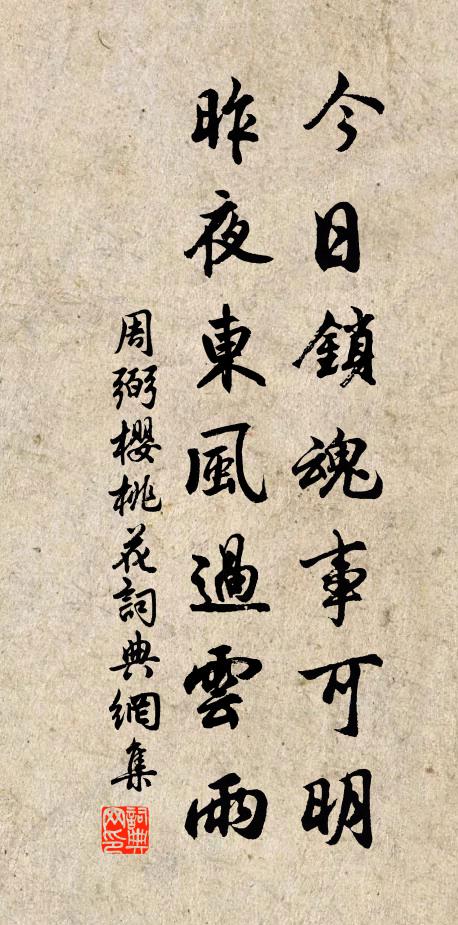 今日鎖魂事可明
昨夜東風過雲雨
周弼櫻桃花詞典網集
詞典网印